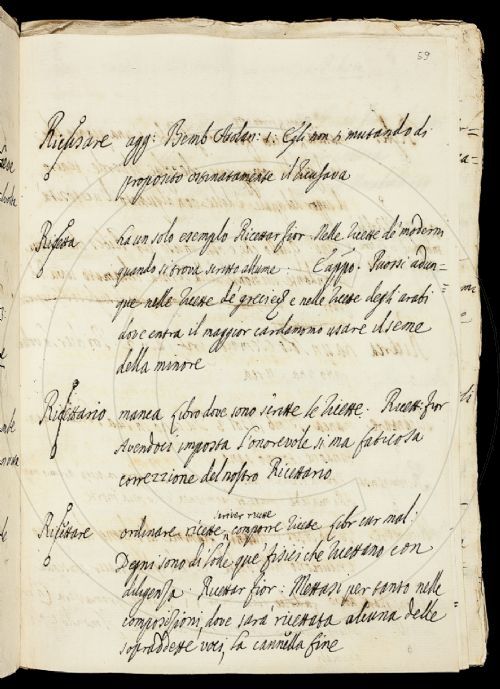 59
Ricusare agg: Bemb Asolan: 1: Egli non si mutando di
proposito ostinatamente il ricusava
Ricetta ha un solo esempio Ricettar fior. Nelle ricette de moderni
quando si trova scritto allume: Cappo. Puossi adun=
que nelle ricette de greci e nelle ricette degli arabi
dove entra il maggior cardamomo usare il seme
della minore
Ricettario manca libro dove sono scritte le ricette. Ricett: fior
Avendoci imposta l'onorevole sì ma faticosa
correzzione del nostro Ricettario
scriver ricette
Ricettare ordinare ricette, comporre ricette libr cur mal:
Degni sono di lode que fisici che ricettano con
diligenza. Ricettar fior: Mettasi per tanto nelle
composizioni, dove sarà ricettata alcuna delle
sopraddette voci, la cannella fine